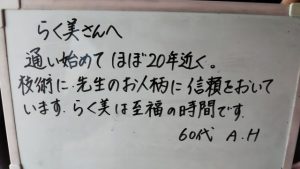 らく美さんへ
通い始めて ほぼ20年近く。
技術に、先生のお人柄に信頼をおいて
います。らく美は至福の時間です。
60代 A.H